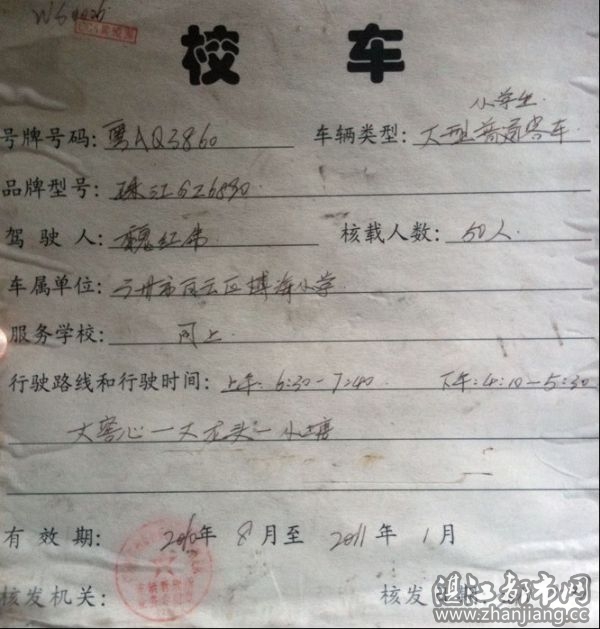 校车
小学生
号牌号码: 粤AQ3860 车辆类型: 大型普通客车
品牌型号: 珠江GZ6890
驾驶人: 魏红伟 核载人数: 50人
车属单位: 广州市白云区博海小学
服务学校: 同上
行驶路线和行驶时间: 上午: 6:30-7:40 下午: 4:10-5:30
大窖心-大龙头-小塘
有效期: 2010年8月至2011年1月
核发机关: 核发日期:
湛江都市网
www.zhanjiang.cc